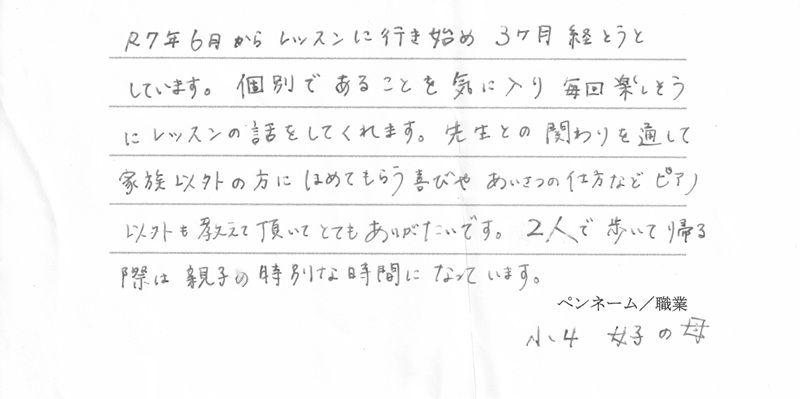 R7年6月からレッスンに行き始め 3ヶ月 経とうと
しています。個別であることを気に入り 毎回楽しそう
にレッスンの話をしてくれます。先生との関わりを通して
家族以外の方にほめてもらう喜びや あいさつの仕方など ピアノ
以外も教えて頂いてとてもありがたいです。2人で歩いて帰る
際は親子の特別な時間になっています。
ペンネーム／職業
小4 女子の母